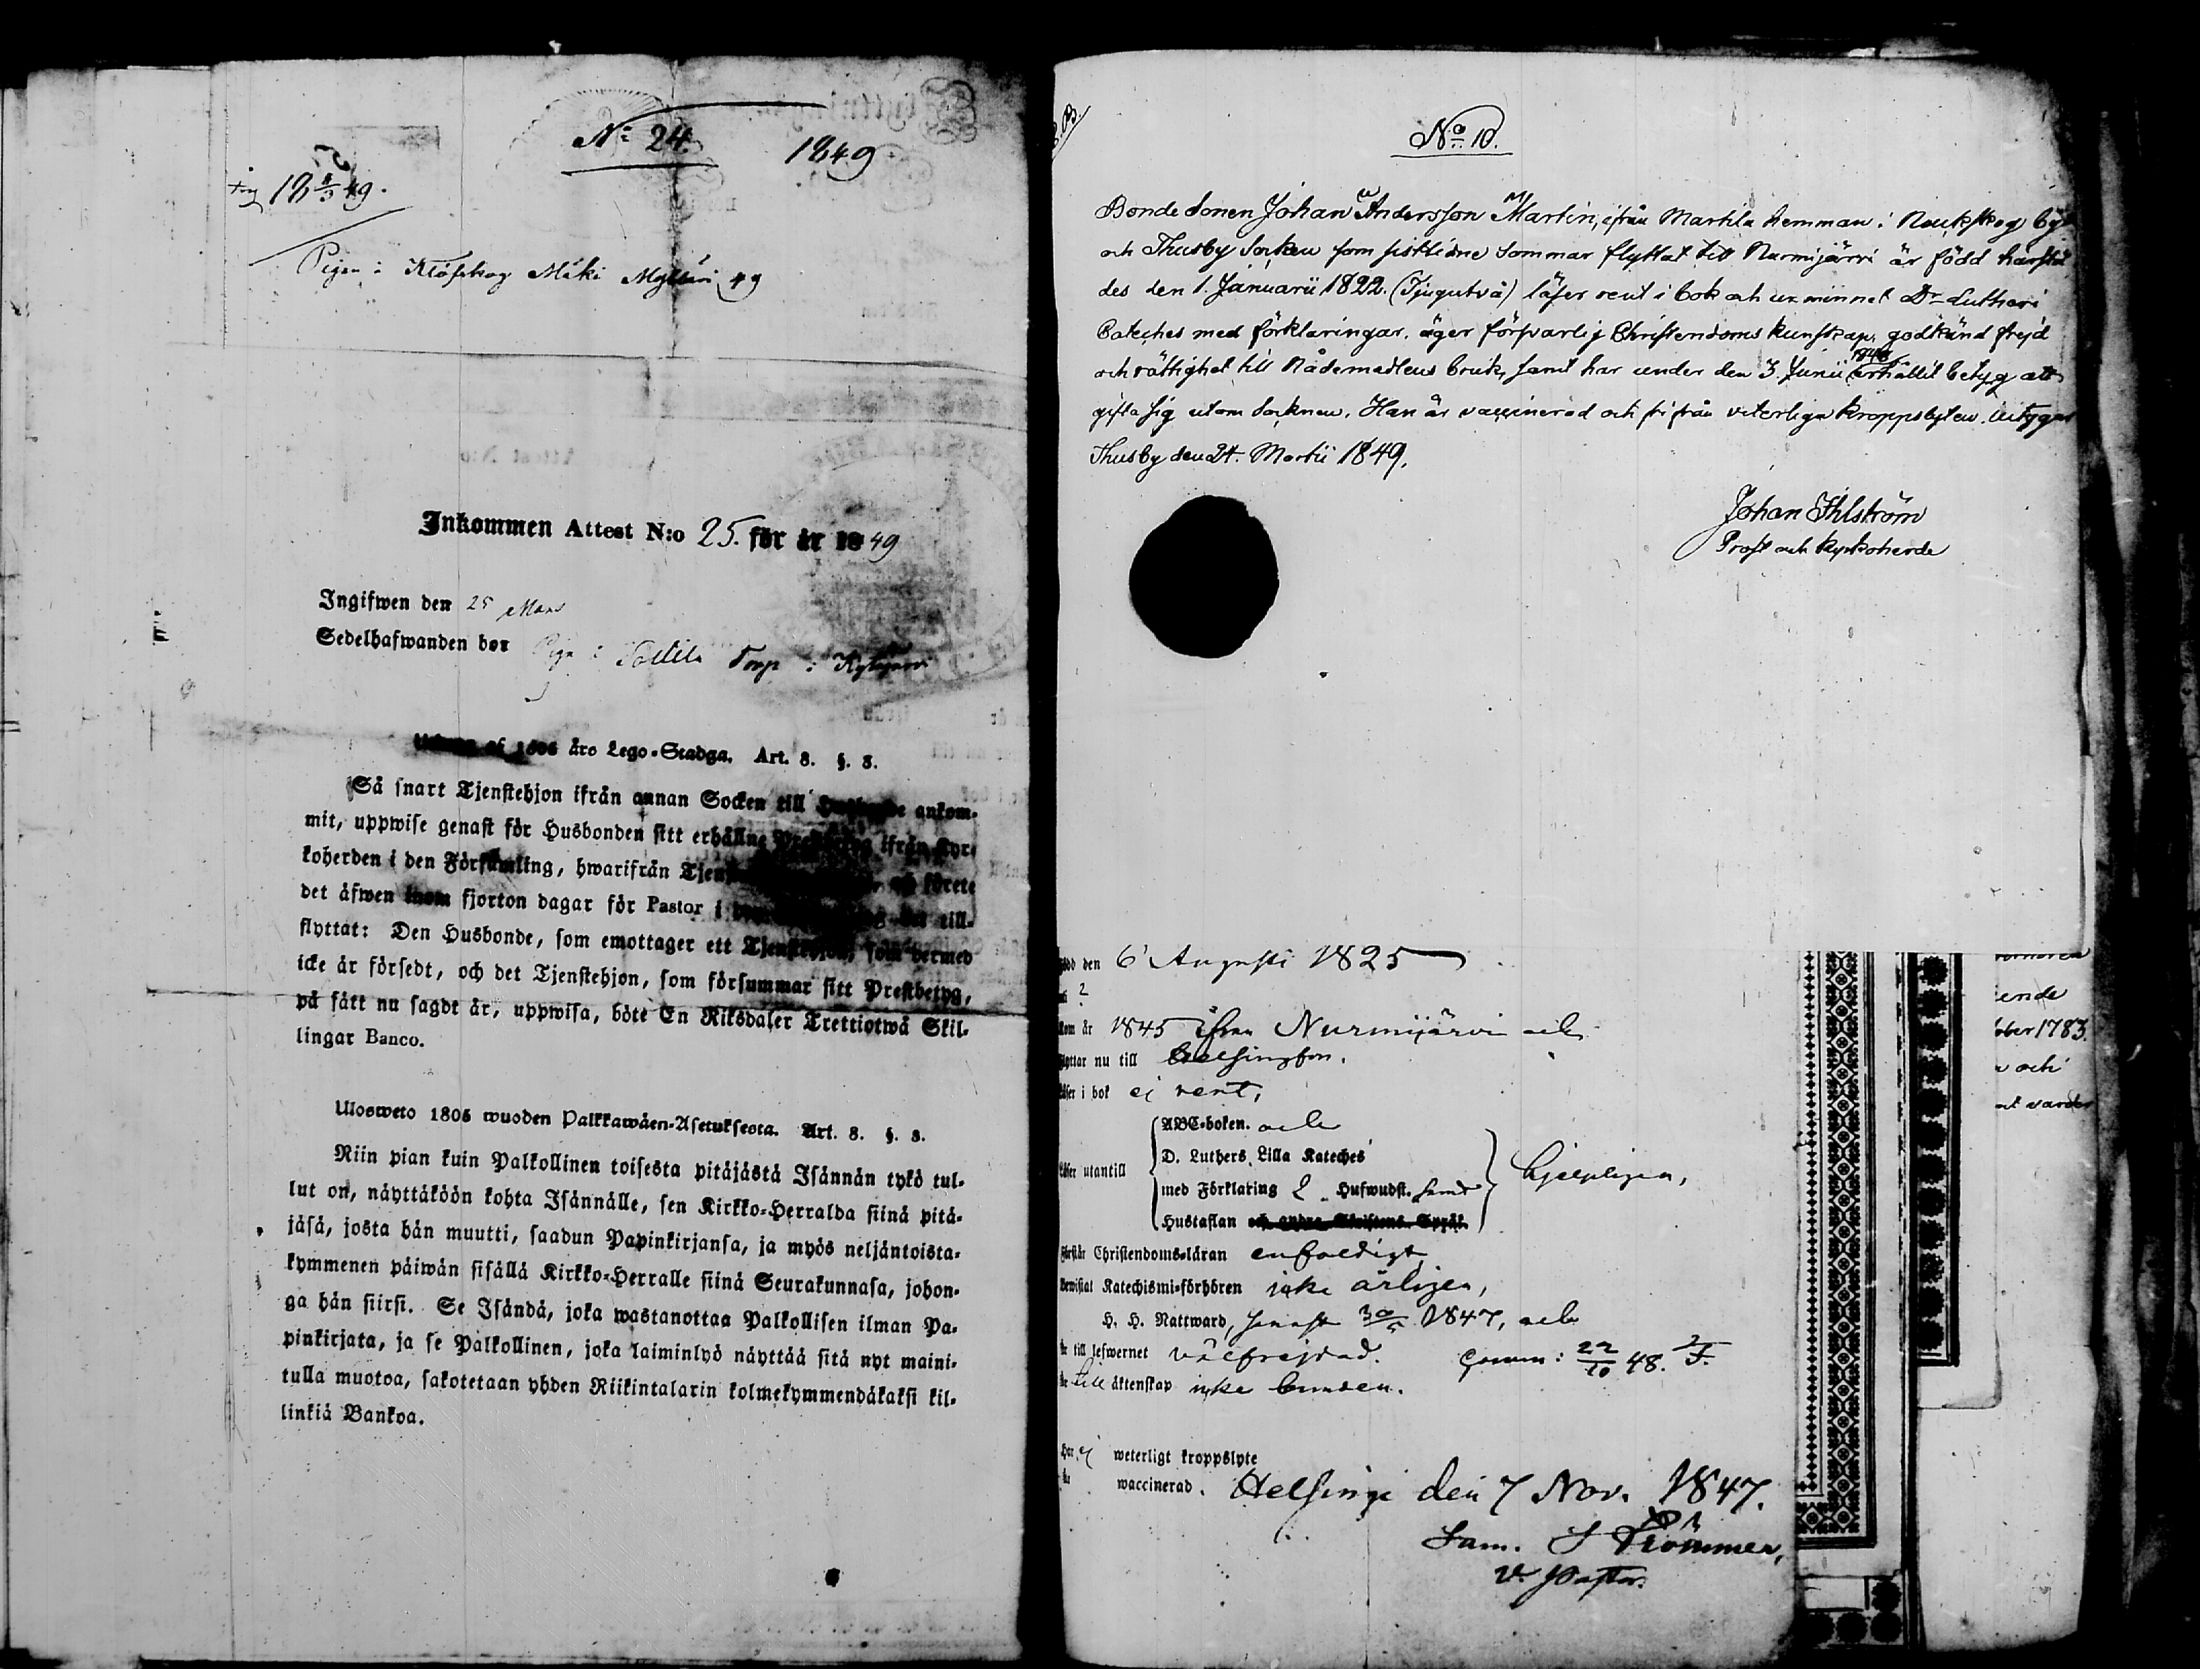 N:o 24.
1849
18 5/3 49.
Pigen i Klöfskog Mäki Mylläri 49
Inkommen Attest N:o 25. för år 1849
Ingifwen den 25 Mars
Sedelhafwanden bor Piga i Torp i Kytäjärvi
af 1805 års Lego-Stadga. Art. 8. §. 8.
Så snart Tjenstehjon ifrån annan Socken till Husbonde ankom-
mit, uppwise genast för Husbonden sitt erhållne ifrån Kyr-
koherden i den Församling, hwarifrån och förete
det äfwen inom fjorton dagar för Pastor i till-
flyttat: Den Husbonde, som emottager ett Tjenstehjon, som dermed
icke är försedt, och det Tjenstehjon, som försummar sitt Prestbetyg,
på sätt nu sagdt är, uppwisa, böte En Riksdaler Trettiotwå Skil-
lingar Banco.
Ulosweto 1805 wuoden Palkkawäen-Asetuksesta. Art. 8. §. 8.
Niin pian kuin Palkollinen toisesta pitäjästä Isännän tykö tul-
lut on, näyttäköön kohta Isännälle, sen Kirkko-Herralda siinä pitä-
jäsä, josta hän muutti, saadun Papinkirjansa, ja myös neljäntoista-
kymmenen päiwän sisällä Kirkko-Herralle siinä Seurakunnasa, johon-
ga hän siirsi. Se Isändä, joka wastanottaa Palkollisen ilman Pa-
pinkirjata, ja se Palkollinen, joka laiminlyö näyttää sitä nyt maini-
tulla muotoa, sakotetaan yhden Riikintalarin kolmekymmendäkaksi kil-
linkiä Bankoa.
No 10.
Bonde Sonen Johan Andersson Martin, ifrån Martila hemman i Nackskog by
och Thusby Socken som sistledne Sommar flyttat till Nurmijärvi är född härstä
des den 1. Januarii 1822. (Tjugutvå) läser rent i bok och ur minnet Dr Lutheri
Cateches med förklaringar, äger försvarlig Christendoms kunskap, godkänd frejd
och rättighet till Nådemedlens bruk, samt har under den 3. Junii 1848 erhållit betyg att
gifta sig utom Socknen. Han är vaccinerad och fri från veterliga kroppslyten. betygas
Thusby den 24. Martii 1849.
Johan Ihlström
Prost och Kyrkoherde
född den 6 Augusti 1825
i ?
kom år 1845 ifrån Nurmijärvi och
flyttar nu till Helsingfors.
läser i bok ej rent,
ABC-boken. och
D. Luthers Lilla Kateches
läser utantill
med Förklaring 2 Hufwudst. samt
hjelpligen,
Hustaflan och andra Skriftens Språk
förstår Christendoms-läran enfaldigt
bewistat Katechismi-förhören icke årligen,
H. H. Nattward, senast 30/5 1847, och
är till lefwernet välfrejdad. Comm: 22/10 48. F.
är till äktenskap icke bunden.
Har ej weterligt kroppslyte
är waccinerad. Helsinge den 7 Nov. 1847.
Sam.
V. Pastor.
ende
ober 1783.
och